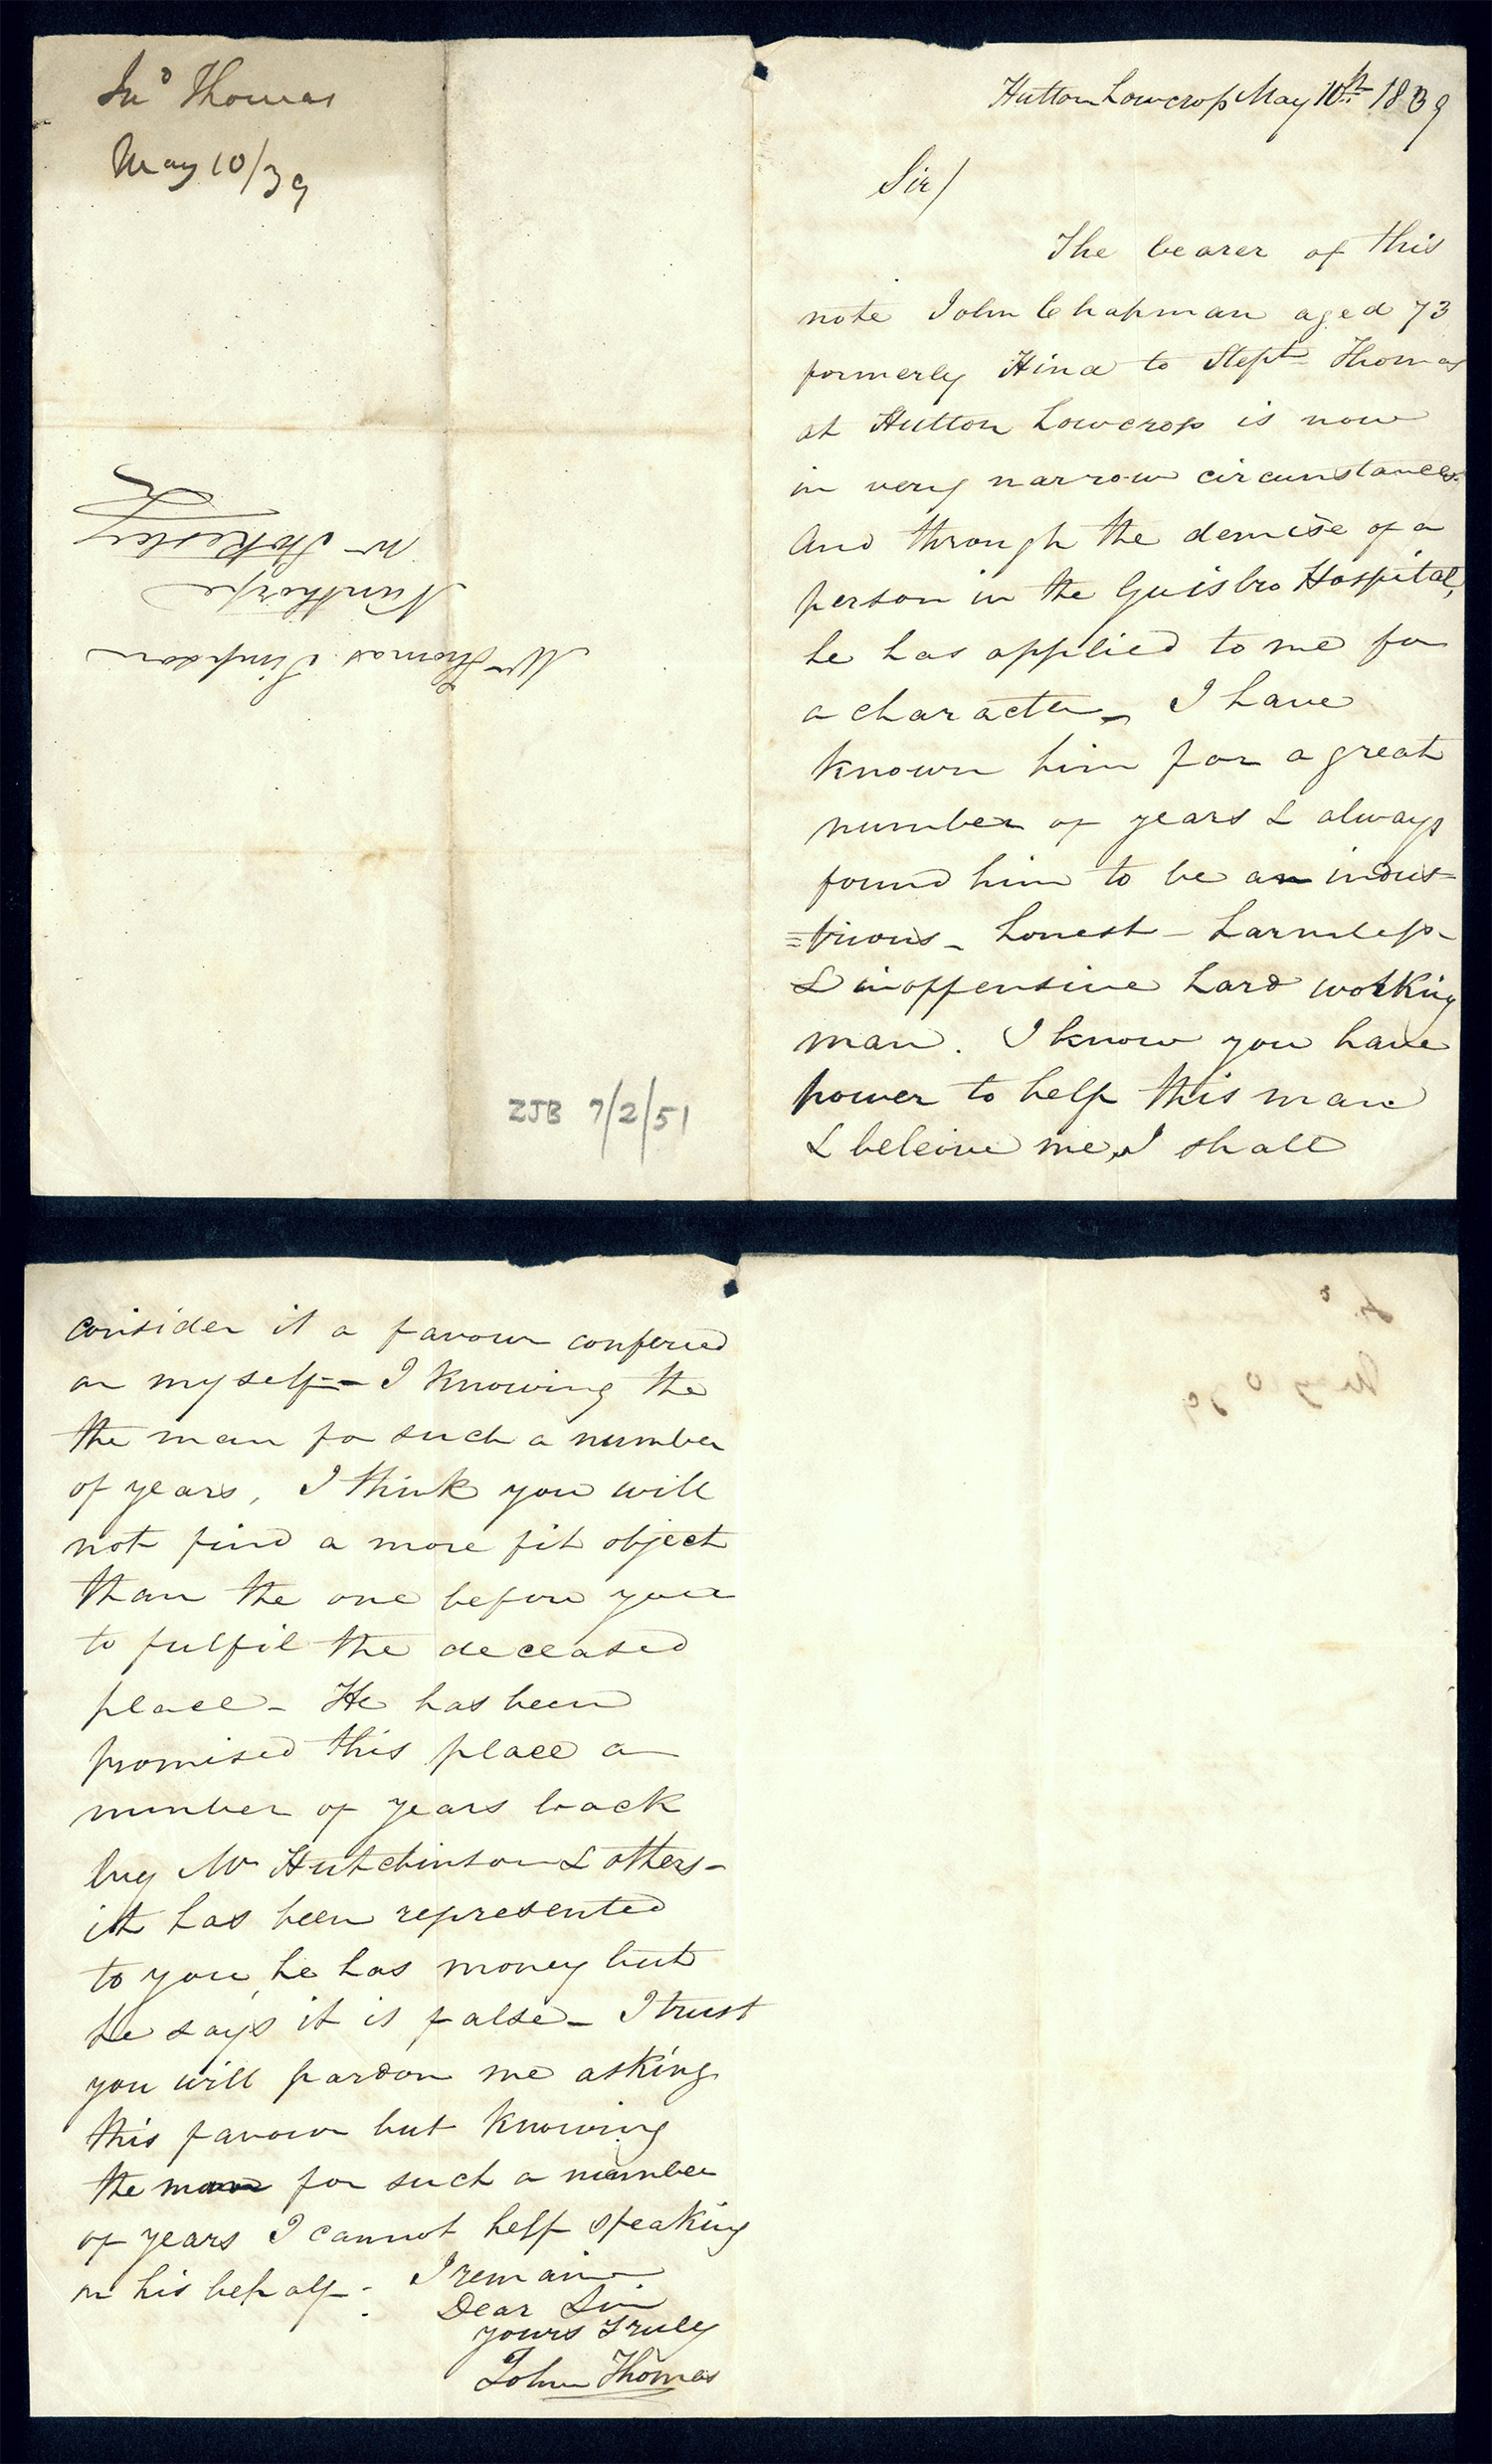 Jnº Thomas
May 10/39
Mr Thomas Simpson
Nunthorpe
nr Stokesley
ZJB 7/2/51
Hutton Lowcrop May 10th 1839
Sir/
The bearer of this
note John Chapman aged 73
formerly Hind to Stepn Thomas
at Hutton Lowcrop is now
in very narrow circumstances.
And through the demise of a
person in the Guisbro Hospital,
he has applied to me for
a character, I have
known him for a great
number of years & always
found him to be an indus=
=trious - honest - harmless -
& inoffensive hard working
man. I know you have
power to help this man
& beleive me, I shall
consider it a favour conferred
on myself = - I knowing the
the man for such a number
of years, I think you will
not find a more fit object
than the one before you
to fulfil the deceased
place - He has been
promised this place a
number of years back
by Mr Hutchinson & others -
it has been represented
to you, he has money but
he says it is false - I trust
you will pardon me asking
this favour but knowing
the man for such a number
of years I cannot help speaking
on his behalf.
I remain
Dear Sir
yours Truly
John Thomas